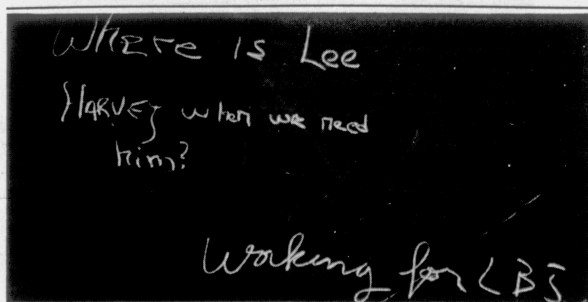 Where is Lee
HARVEY when we need
him?
Working for LBJ